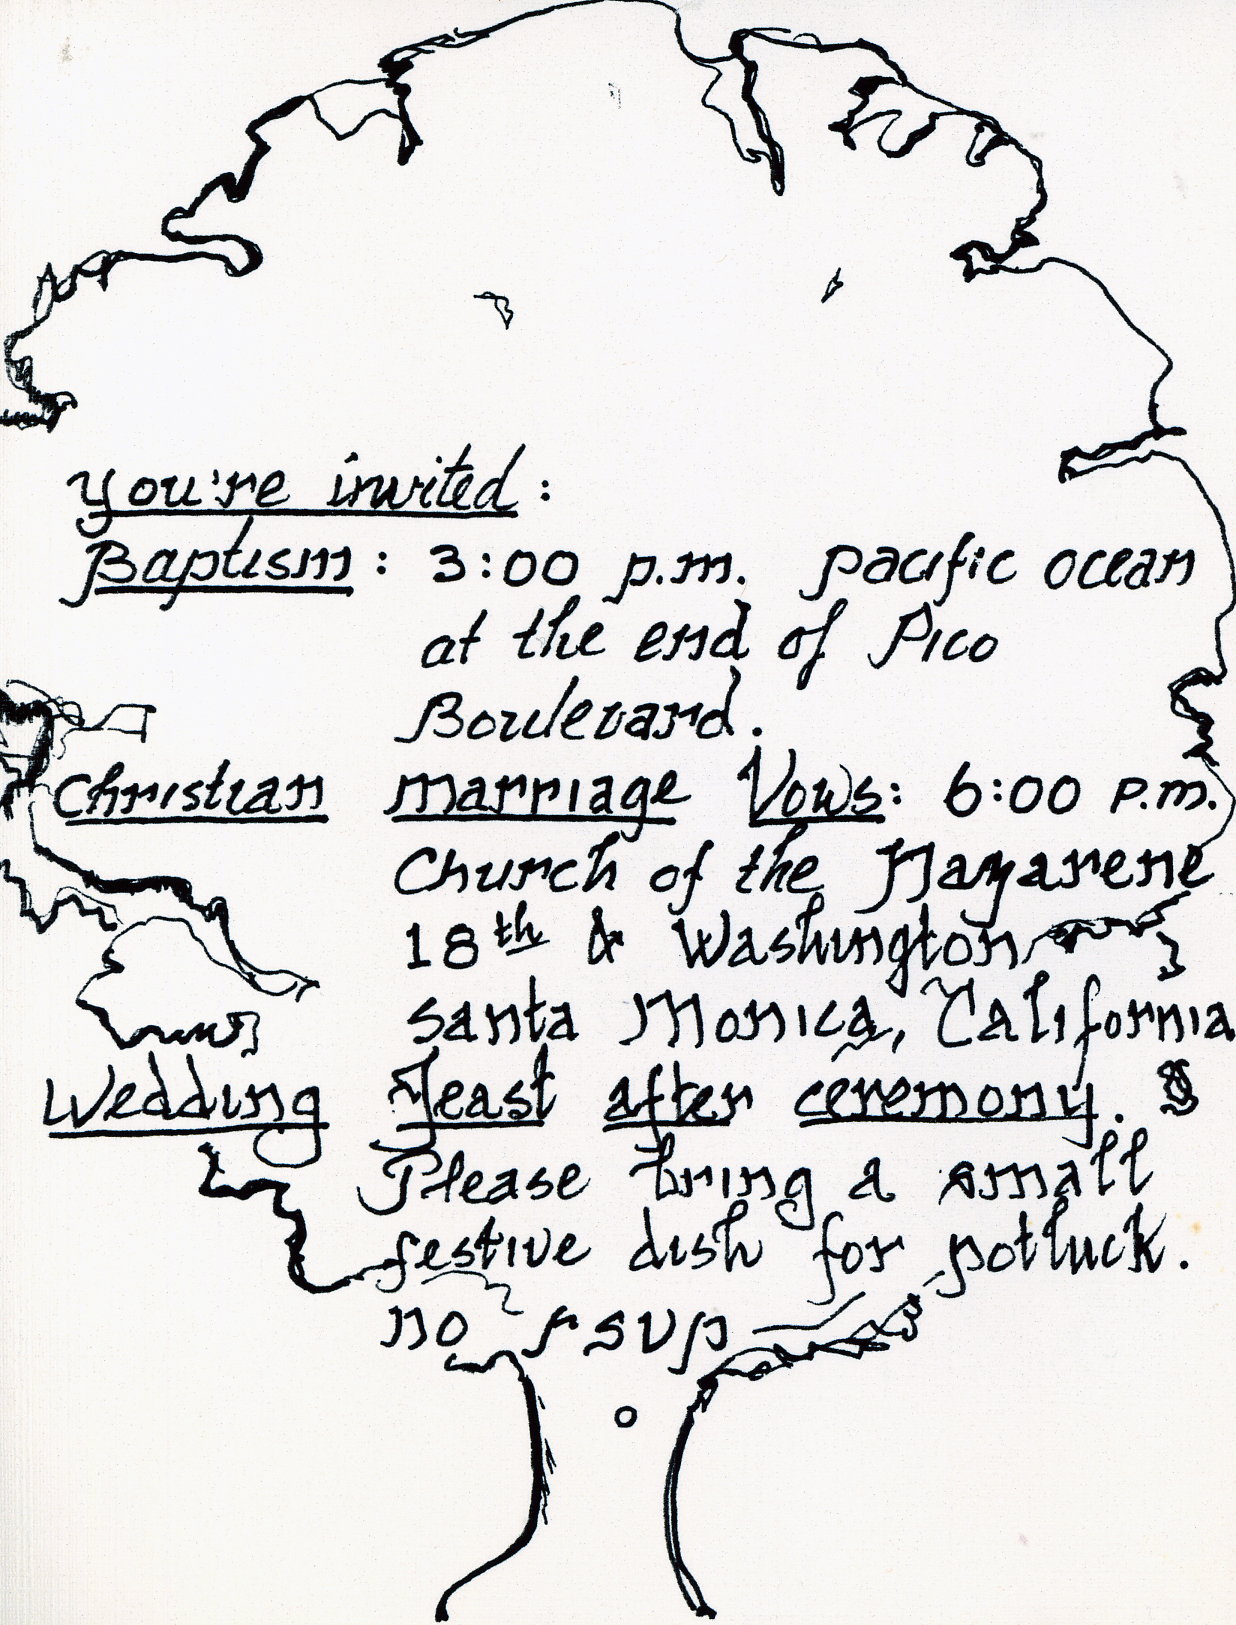 you're invited:
Baptism: 3:00 p.m. pacific ocean
at the end of Pico
Boulevard.
Christian marriage Vows: 6:00 p.m.
Church of the Nazarene
18th & Washington
Santa Monica, California
Wedding Feast after ceremony.
Please bring a small
festive dish for potluck.
no rsvp